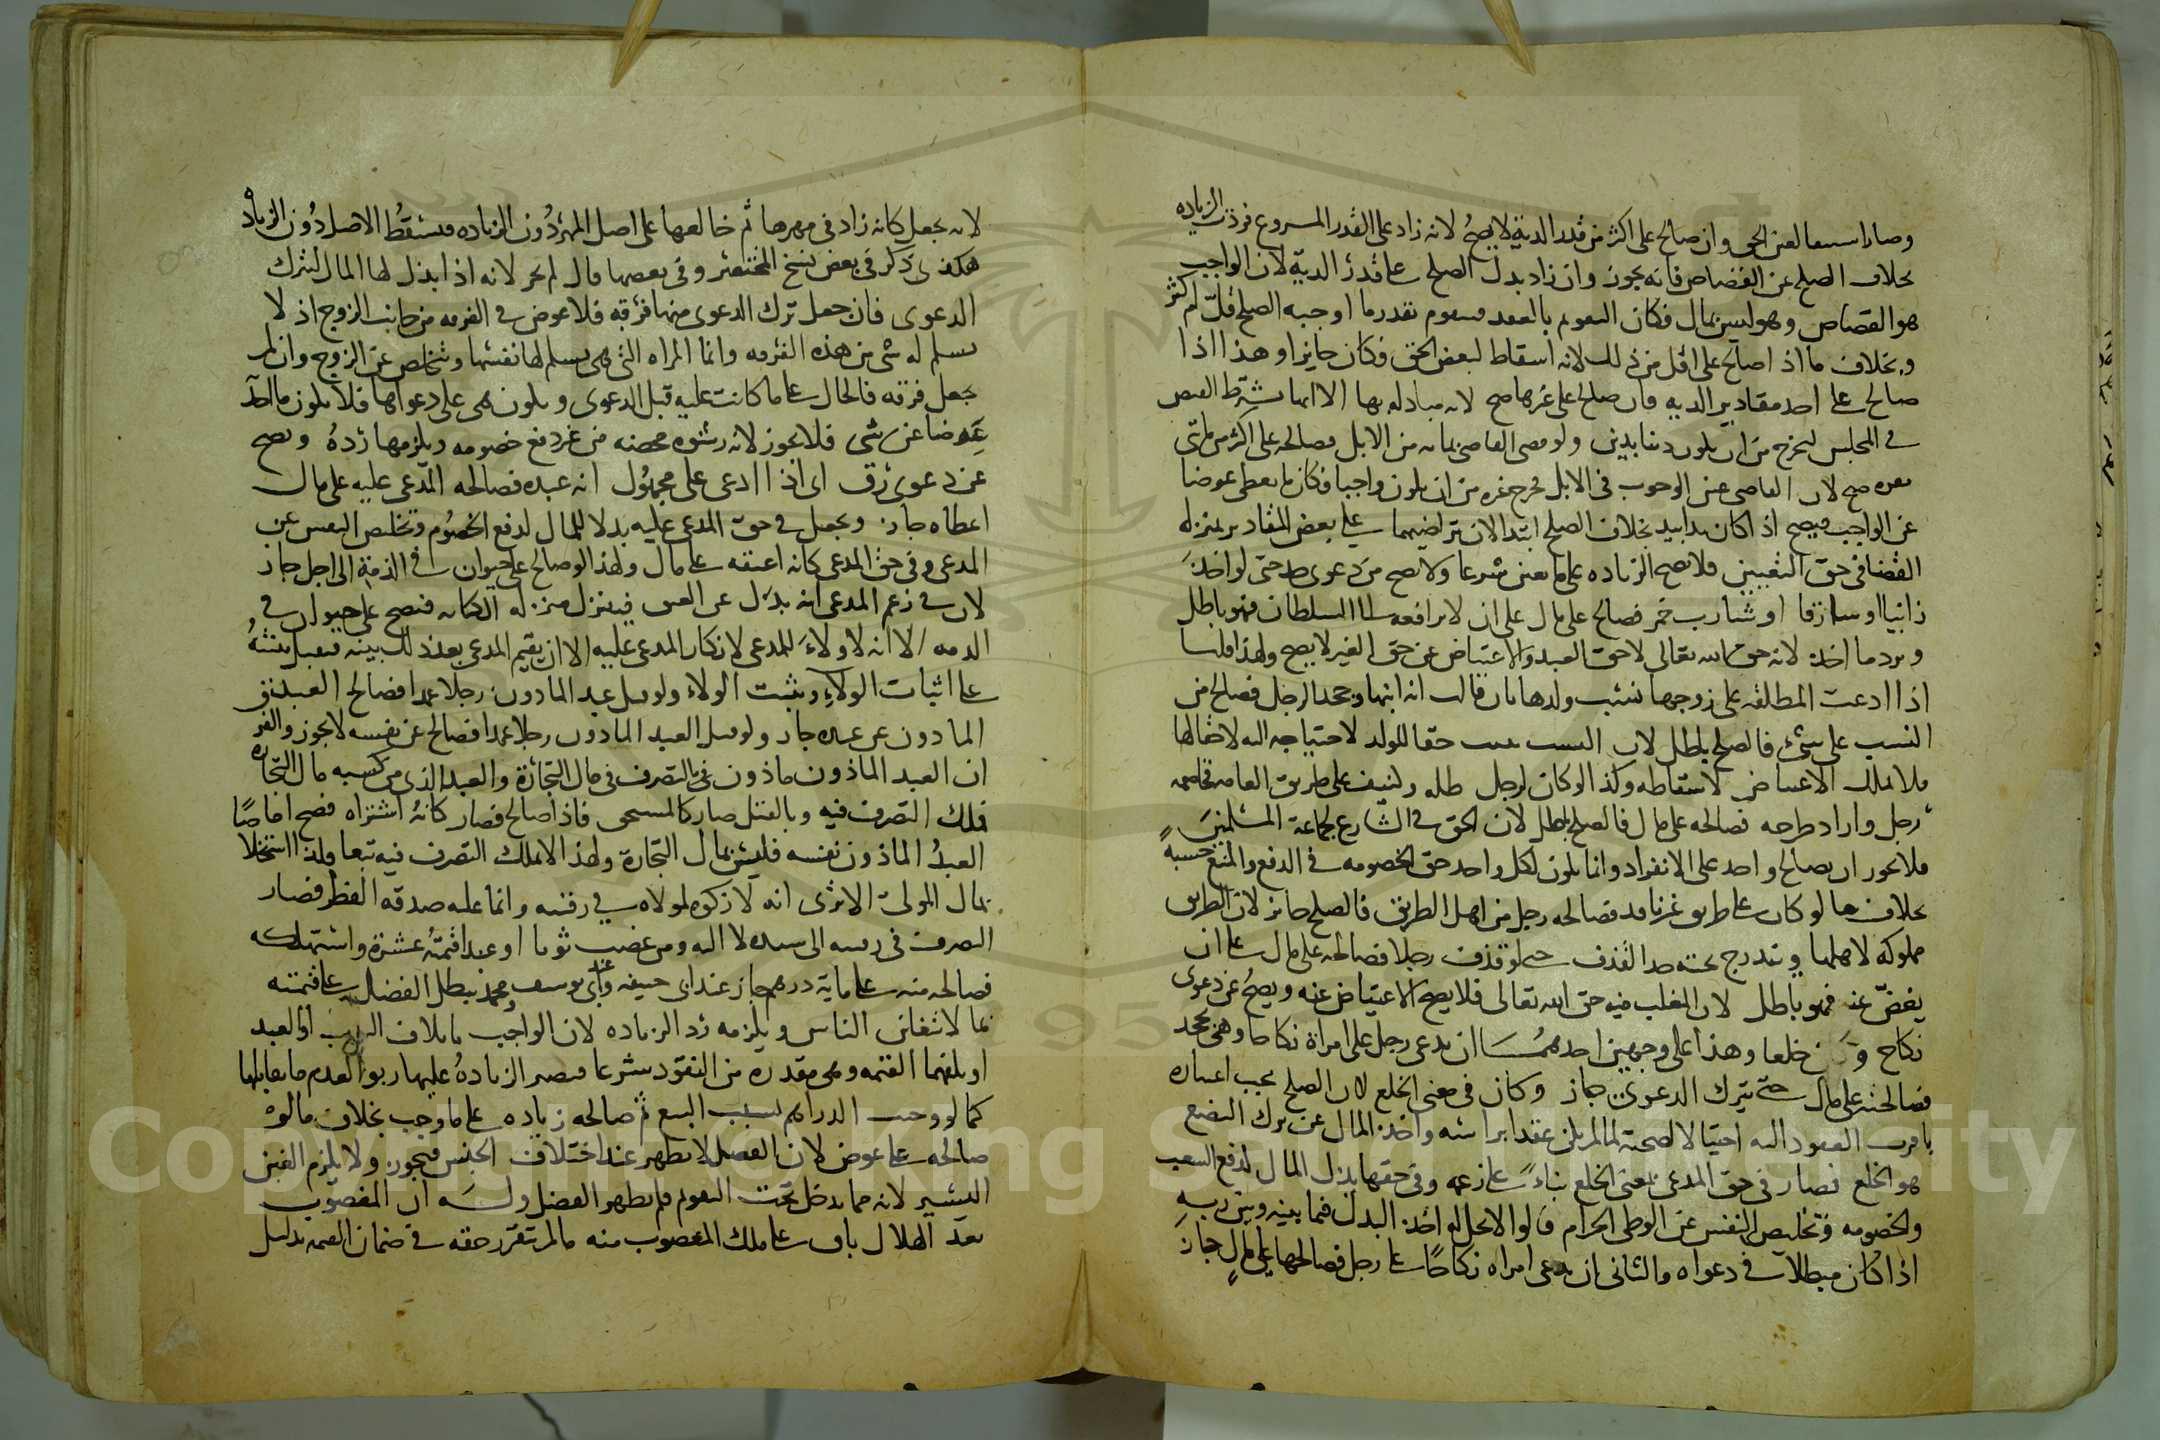 وصار استيفا لعين الحق وان صالح على اكثر من قدر الدية لا يصح لانه زاد على القدر المشروع فردت الزياده
بخلاف الصلح عن القصاص فانه يجوز وان زاد بدل الصلح على قدر الدية لان الواجب
هو القصاص وهو ليس بمال فكان التقويم بالعقد فيقوم بقدر ما اوجبه الصلح قل ام كثر
وبخلاف ما اذا صالح على اقل من ذلك لانه اسقاط لبعض الحق فكان جايزا وهذا اذا
صالح على احد مقادير الديه وان صالح على غيرها صح لانه مبادله بها الا انما يشترط القبض
في المجلس ليخرج من ان يكون دينا بدين ولو قضى القاضي بمايه من الابل فصالحه على اكثر من مايتي
بقره صح لان القاضي عين الوجوب في الابل فخرج غيره من ان يكون واجبا فكان ما يعطى عوضا
عن الواجب فيصح اذ اكان يدا بيد بخلاف الصلح ابتدا لان تراضيهما على بعض المقادير بمنزله
القضا في حق التعيين فلا تصح الزياده على ما تعين شرعا ولا تصح من دعوى حد حتى لو اخذ
زانيا او سارقا او شارب خمر فصالح على مال على ان لا يرافعه الى السلطان فهو باطل
ويرد ما اخذ لانه حق الله تعالى لا حق العبد والاعتياض عن حق الغير لا يصح ولهذا قلنا
اذا ادعت المطلقه على زوجها نسب ولدها بان قالت انه ابنها وجحد الرجل فصالح من
النسب على شيء فالصلح باطل لان النسب يثبت حقا للولد لاحتياجه اليه لا حقا لها
فلا تملك الاعتياض لاسقاطه وكذا لو كان لرجل ظله وكنيف على طريق العامه فخاصمه
رجل واراد طرحه فصالحه على مال فالصلح باطل لان الحق في الشارع لجماعة المسلمين
فلا يجوز ان يصالح واحد على الانفراد وانما يكون لكل واحد حق الخصومه في الدفع والمنع حسبه
بخلاف ما لو كان على طريق غير نافد فصالحه رجل من اهل الطريق فالصلح جايز لان الطريق
مملوكه لاهلها ويندرج تحته حد القذف حتى لو قذف رجلا فصالحه على مال على ان
يغض عنه فهو باطل لان المغلب فيه حق الله تعالى فلا يصح الاعتياض عنه ويصح عن دعوى
نكاح خلعا وهذا على وجهين احدهمــا ان يدعى رجل على امراة نكاحا وهي تجحد
فصالحته على مال حتى يترك الدعوى جاز وكان في معنى الخلع لان الصلح يجب اعتباره
باقرب العقود اليه احتيا لا لصحته لما لم يكن عقدا براسه واخذ المال عن ترك البضع
هو الخلع فصار في حق المدعى بمعنى الخلع بناء على زعمه وفي حقها بذل المال لدفع الشغب
والخصومه وتخليص النفس عن الوطي الحرام قالوا لا يحل له اخذ البدل فيما بينه وبين ربه
اذا كان مبطلا في دعواه والثانى ان تدعى امراه نكاحا على رجل فصالحها على مال جاز
لانه يجعل كانه زاد في مهرها ثم خالعها على اصل المهر دون الزياده فيسقط الاصل دون الزياده
هكذى ذكر في بعض نسخ المختصر وفي بعضها قال لم يجز لانه اذا بذل لها المال لتترك
الدعوى فان جعل ترك الدعوى منها فرقه فلا عوض في الفرقه من جانب الزوج اذ لا
يسلم له شي من هذه الفرقه وانما المراه التي هي يسلم لها نفسها وتتخلص عن الزوج وان لم
يجعل فرقه فالحال على ما كانت عليه قبل الدعوى ويكون هي على دعواها فلا يكون ما اخذ
عوضا عن شي فلا يجوز لانه رشوه محضه من غير دفع خصومه ويلزمها رده ويصح
عن دعوى رق اى اذا ادعى على مجهول انه عبده فصالحه المدعى عليه على مال
اعطاه جاز ويجعل في حق المدعى عليه بدلا للمال لدفع الخصوم وتخليص النفس عن
المدعى وفي حق المدعى كانه اعتقه على مال ولهذا لو صالح على حيوان في الذمة الى اجل جاز
لان في زعم المدعى انه بدل عن العتق فينزل منزله الكتابه فيصح على حيوان في
الذمه الا انه لا ولاء للمدعى لانكار المدعى عليه الا ان يقيم المدعى بعد ذلك بينه فتقبل بينته
على اثبات الولاء ويثبت الولاء ولو قتل عبد الماذون رجلا عمدا فصالح العبد
الماذون عن عبده جاز ولو قتل العبد الماذون رجلا عمدا فصالح عن نفسه لا يجوز والفرق
ان العبد الماذون ماذون في التصرف في مال التجارة والعبد الذى من كسبه مال التجاره
فملك التصرف فيه وبالقتل صار كالمستحق فاذا صالح فصار كانه اشتراه فصح اما رقبة
العبد الماذون نفسه فليس بمال التجارة ولهذا لا يملك التصرف فيه تبعا ولهذا استخلا
بمال المولى الا ترى انه لا زكوه لمولاه في رقبته وانما عليه صدقه الفطر فصار
التصرف في رقبته الى سيده لا اليه ومن غصب ثوبا او عبدا قيمته عشرة واستهلكه
فصالحه منه على ماية درهم جاز عند ابى حنيفه وعند ابي يوسف ومحمد يبطل الفضل على قيمته
بما لا يتغابن الناس ويلزمه رد الزياده لان الواجب باتلاف الثوب او العبد
او تلفهما القيمه وهى مقدره من النقود شرعا فتصير الزيادة عليها ربوا لعدم ما يقابلها
كما لو وجبت الدراهم بسبب البيع ثم صالحه زياده على ما وجب بخلاف ما لو
صالحه على عوض لان الفضل لا يظهر عند اختلاف الجنس فيجوز ولا يلزم الغبن
اليسير لانه مما يدخل تحت التقويم فلم يظهر الفضل ولــه ان المغصوب
بعد الهلاك باق على ملك المغصوب منه ما لم يتقرر حقه في ضمان القيمه بدليل